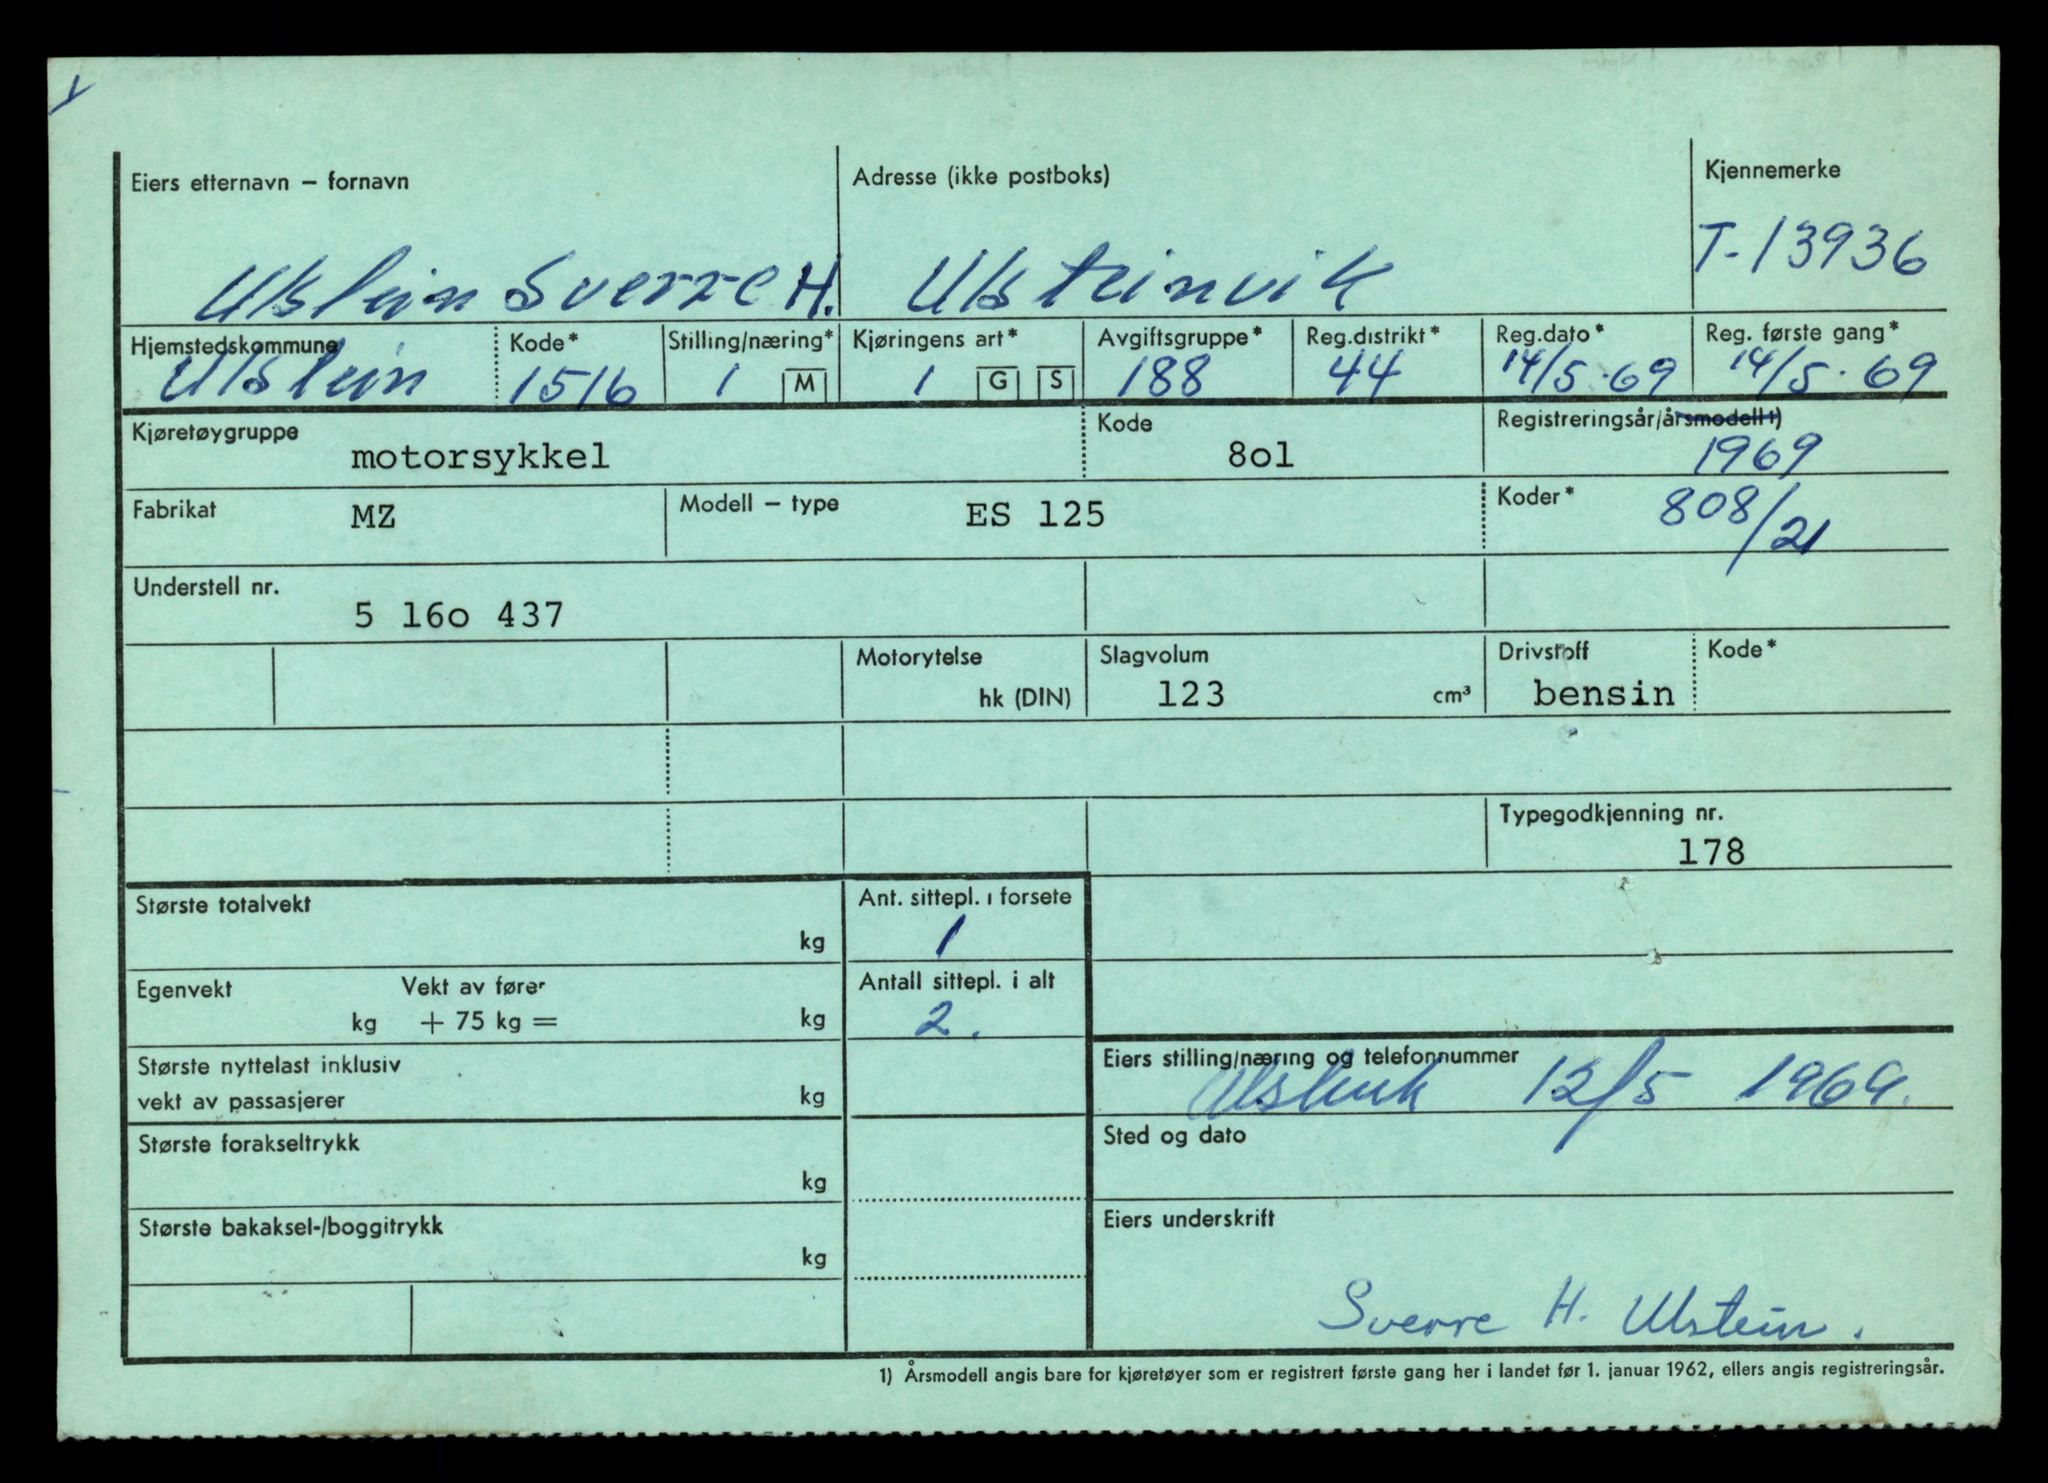 Eiers etternavn – fornavn
Adresse (ikke postboks)
Kjennemerke
T-13936
Ulstein Sverre H.
Ulsteinvik
Hjemstedskommune
Kode*
Stilling/næring*
Kjøringens art*
Avgiftsgruppe*
Reg.distrikt*
Reg.dato*
Reg. første gang*
Ulstein
1516
1 M
1 G S
188
44
14/5.69
14/5.69
Kjøretøygruppe
motorsykkel
Kode
8o1
Registreringsår/årsmodell 1)
1969
Fabrikat
MZ
Modell – type
ES 125
Koder*
808/21
Understell nr.
5 16o 437
Motorytelse
hk (DIN)
Slagvolum
123 cm³
Drivstoff
bensin
Kode*
Typegodkjenning nr.
178
Største totalvekt
kg
Ant. sittepl. i forsete
1
Egenvekt
Vekt av fører
kg + 75 kg = kg
Antall sittepl. i alt
2.
Største nyttelast inklusiv
vekt av passasjerer
kg
Eiers stilling/næring og telefonnummer
12/5 1969.
Største forakseltrykk
kg
Sted og dato
Største bakaksel-/boggitrykk
kg
Eiers underskrift
Sverre H. Ulstein.
1) Årsmodell angis bare for kjøretøyer som er registrert første gang her i landet før 1. januar 1962, ellers angis registreringsår.